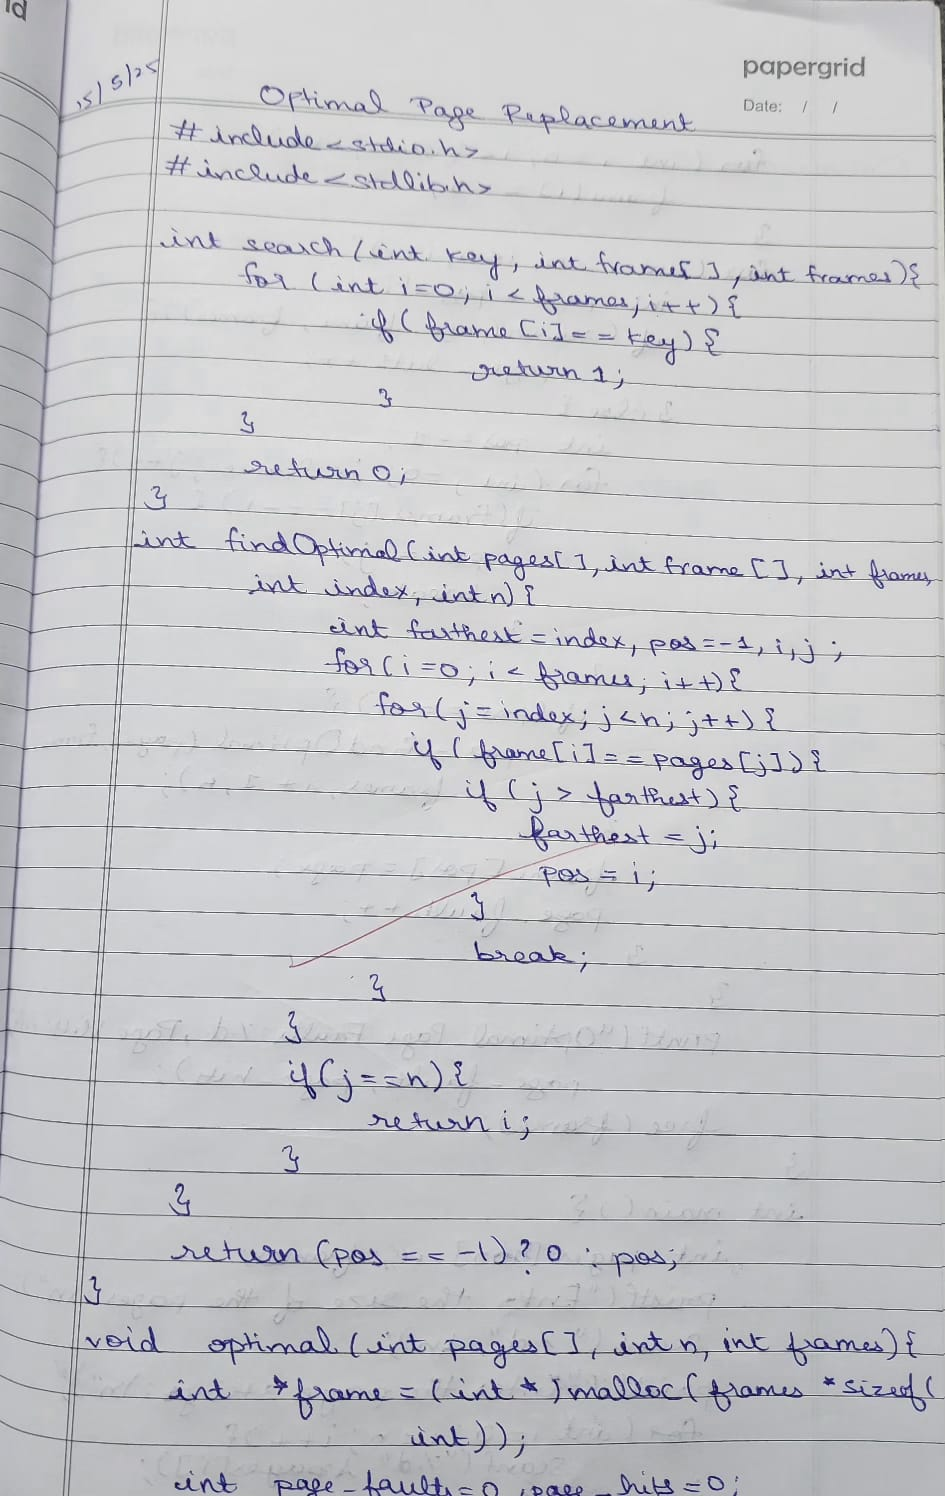 id
papergrid
Date: / /
15/5/25
Optimal Page Replacement
# include <stdio.h>
# include <stdlib.h>
int search (int key, int frame[ ], int frames){
for (int i=0; i < frames; i++){
if ( frame [i] == key) {
return 1;
}
}
return 0;
}
int findOptimal (int pages[ ], int frame [ ], int frames,
int index, int n) {
int farthest = index, pos = -1, i, j ;
for( i = 0; i < frames; i++){
for ( j = index; j < n; j++) {
if ( frame[i] == pages[j]) {
if (j > farthest) {
farthest = j;
pos = i;
}
break;
}
}
if (j == n) {
return i;
}
}
return (pos == -1) ? 0 : pos;
}
void optimal (int pages[ ], int n, int frames) {
int *frame = (int *) malloc ( frames * sizeof (
int));
int page_faults = 0, page_hits = 0;